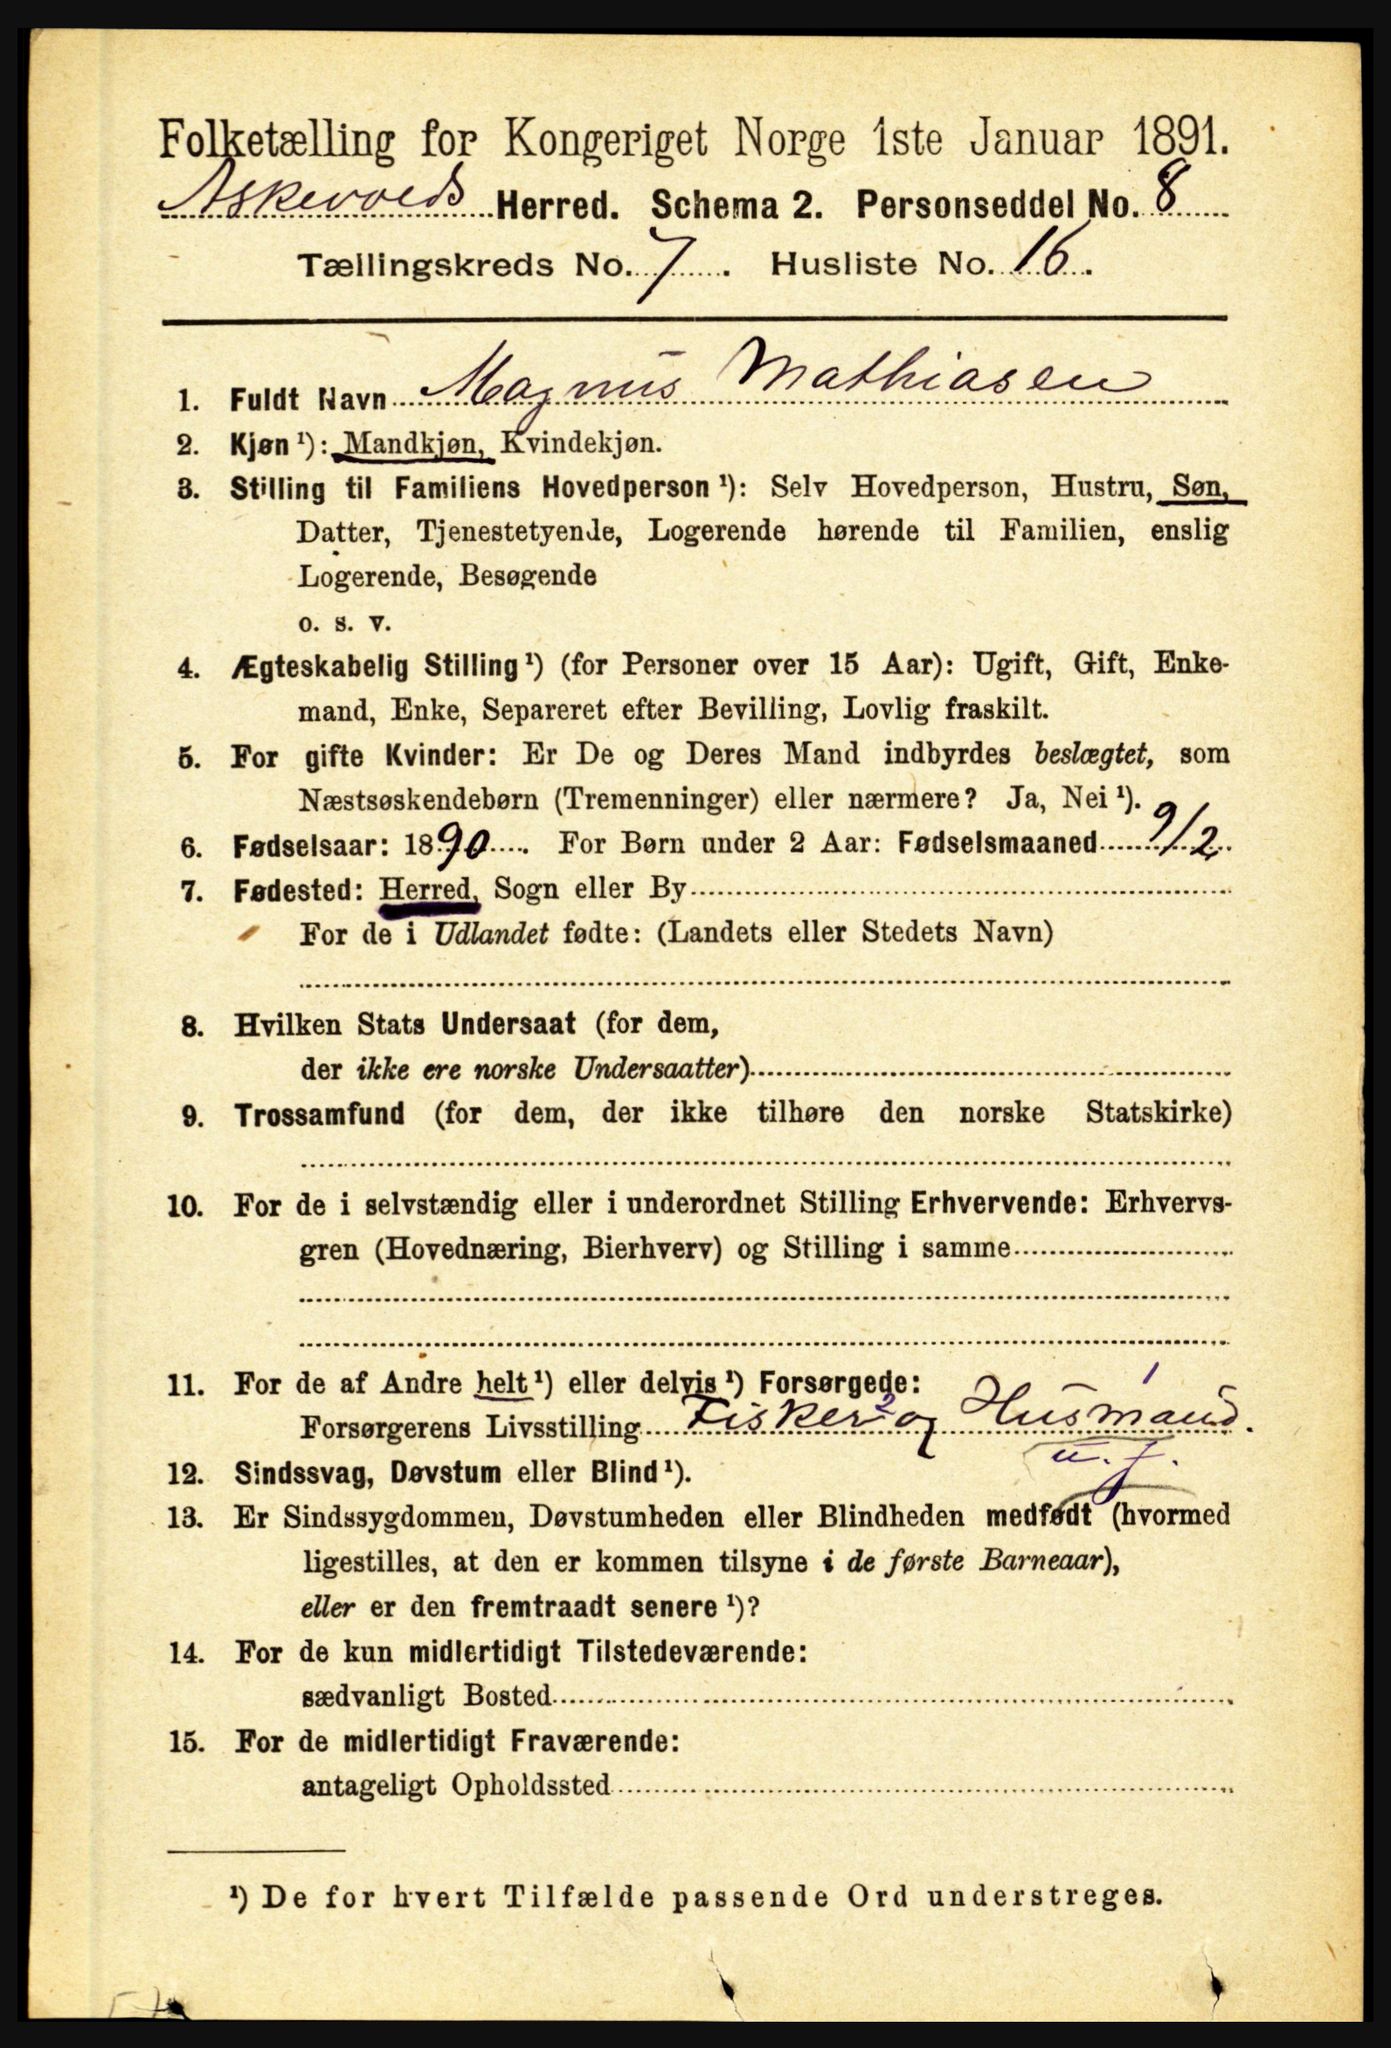 Folketælling for Kongeriget Norge 1ste Januar 1891.
Askevolds Herred. Schema 2. Personseddel No. 8
Tællingskreds No. 7. Husliste No. 16.
1. Fuldt Navn Magnus Mathiasen
2. Kjøn ¹): Mandkjøn, Kvindekjøn.
3. Stilling til Familiens Hovedperson ¹): Selv Hovedperson, Hustru, Søn,
Datter, Tjenestetyende, Logerende hørende til Familien, enslig
Logerende, Besøgende
o. s. v.
4. Ægteskabelig Stilling ¹) (for Personer over 15 Aar): Ugift, Gift, Enke-
mand, Enke, Separeret efter Bevilling, Lovlig fraskilt.
5. For gifte Kvinder: Er De og Deres Mand indbyrdes beslægtet, som
Næstsøskendebørn (Tremenninger) eller nærmere? Ja, Nei ¹).
6. Fødselsaar: 1890. For Børn under 2 Aar: Fødselsmaaned 9/2
7. Fødested: Herred, Sogn eller By
For de i Udlandet fødte: (Landets eller Stedets Navn)
8. Hvilken Stats Undersaat (for dem,
der ikke ere norske Undersaatter)
9. Trossamfund (for dem, der ikke tilhøre den norske Statskirke)
10. For de i selvstændig eller i underordnet Stilling Erhvervende: Erhvervs-
gren (Hovednæring, Bierhverv) og Stilling i samme
11. For de af Andre helt ¹) eller delvis ¹) Forsørgede:
Forsørgerens Livsstilling Fisker 2 og Husmand 1.
u. j.
12. Sindssvag, Døvstum eller Blind ¹).
13. Er Sindssygdommen, Døvstumheden eller Blindheden medfødt (hvormed
ligestilles, at den er kommen tilsyne i de første Barneaar),
eller er den fremtraadt senere ¹)?
14. For de kun midlertidigt Tilstedeværende:
sædvanligt Bosted
15. For de midlertidigt Fraværende:
antageligt Opholdssted
¹) De for hvert Tilfælde passende Ord understreges.